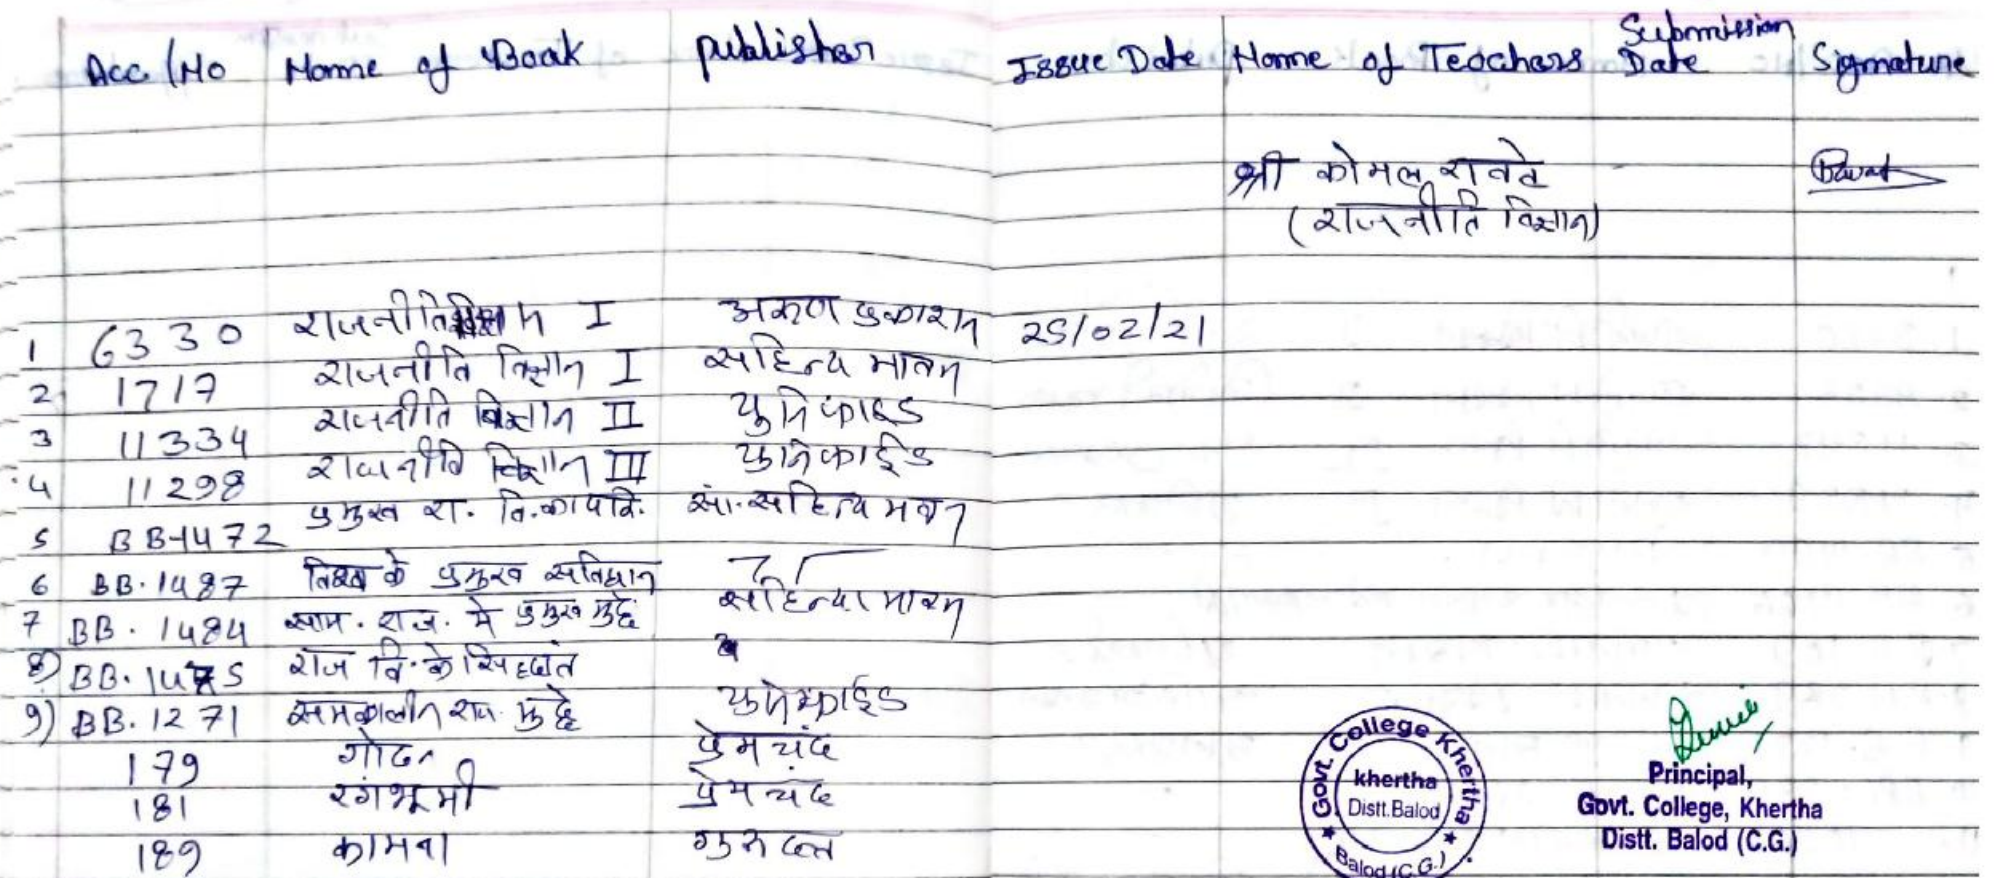 Acc./No Name of Book publisher Issue Date Name of Teachers Submission Date Signature
श्री कोमल रावटे
(राजनीति विज्ञान)
1 6330 राजनीति विज्ञान I अरुण प्रकाशन 25/02/21
2 1717 राजनीति विज्ञान I साहित्य भवन
3 11334 राजनीति विज्ञान II युनिफाइड
4 11298 राजनीति विज्ञान III युनिफाईड
5 BB-1472 प्रमुख रा. वि. सा. साहित्य भवन
6 BB.1487 विश्व के प्रमुख संविधान
7 BB.1484 साम. राज. मे प्रमुख मुद्दे साहित्य भवन
8) BB. राज वि. के सिद्धांत
9) BB.1271 समकालीन राज. मुद्दे युनिफाईड
179 गोदान प्रेमचंद
181 रंगभूमी प्रेमचंद
189 कामना गुरुदत्त
Govt. College Khertha
khertha
Distt.Balod
Balod (C.G.)
Principal,
Govt. College, Khertha
Distt. Balod (C.G.)